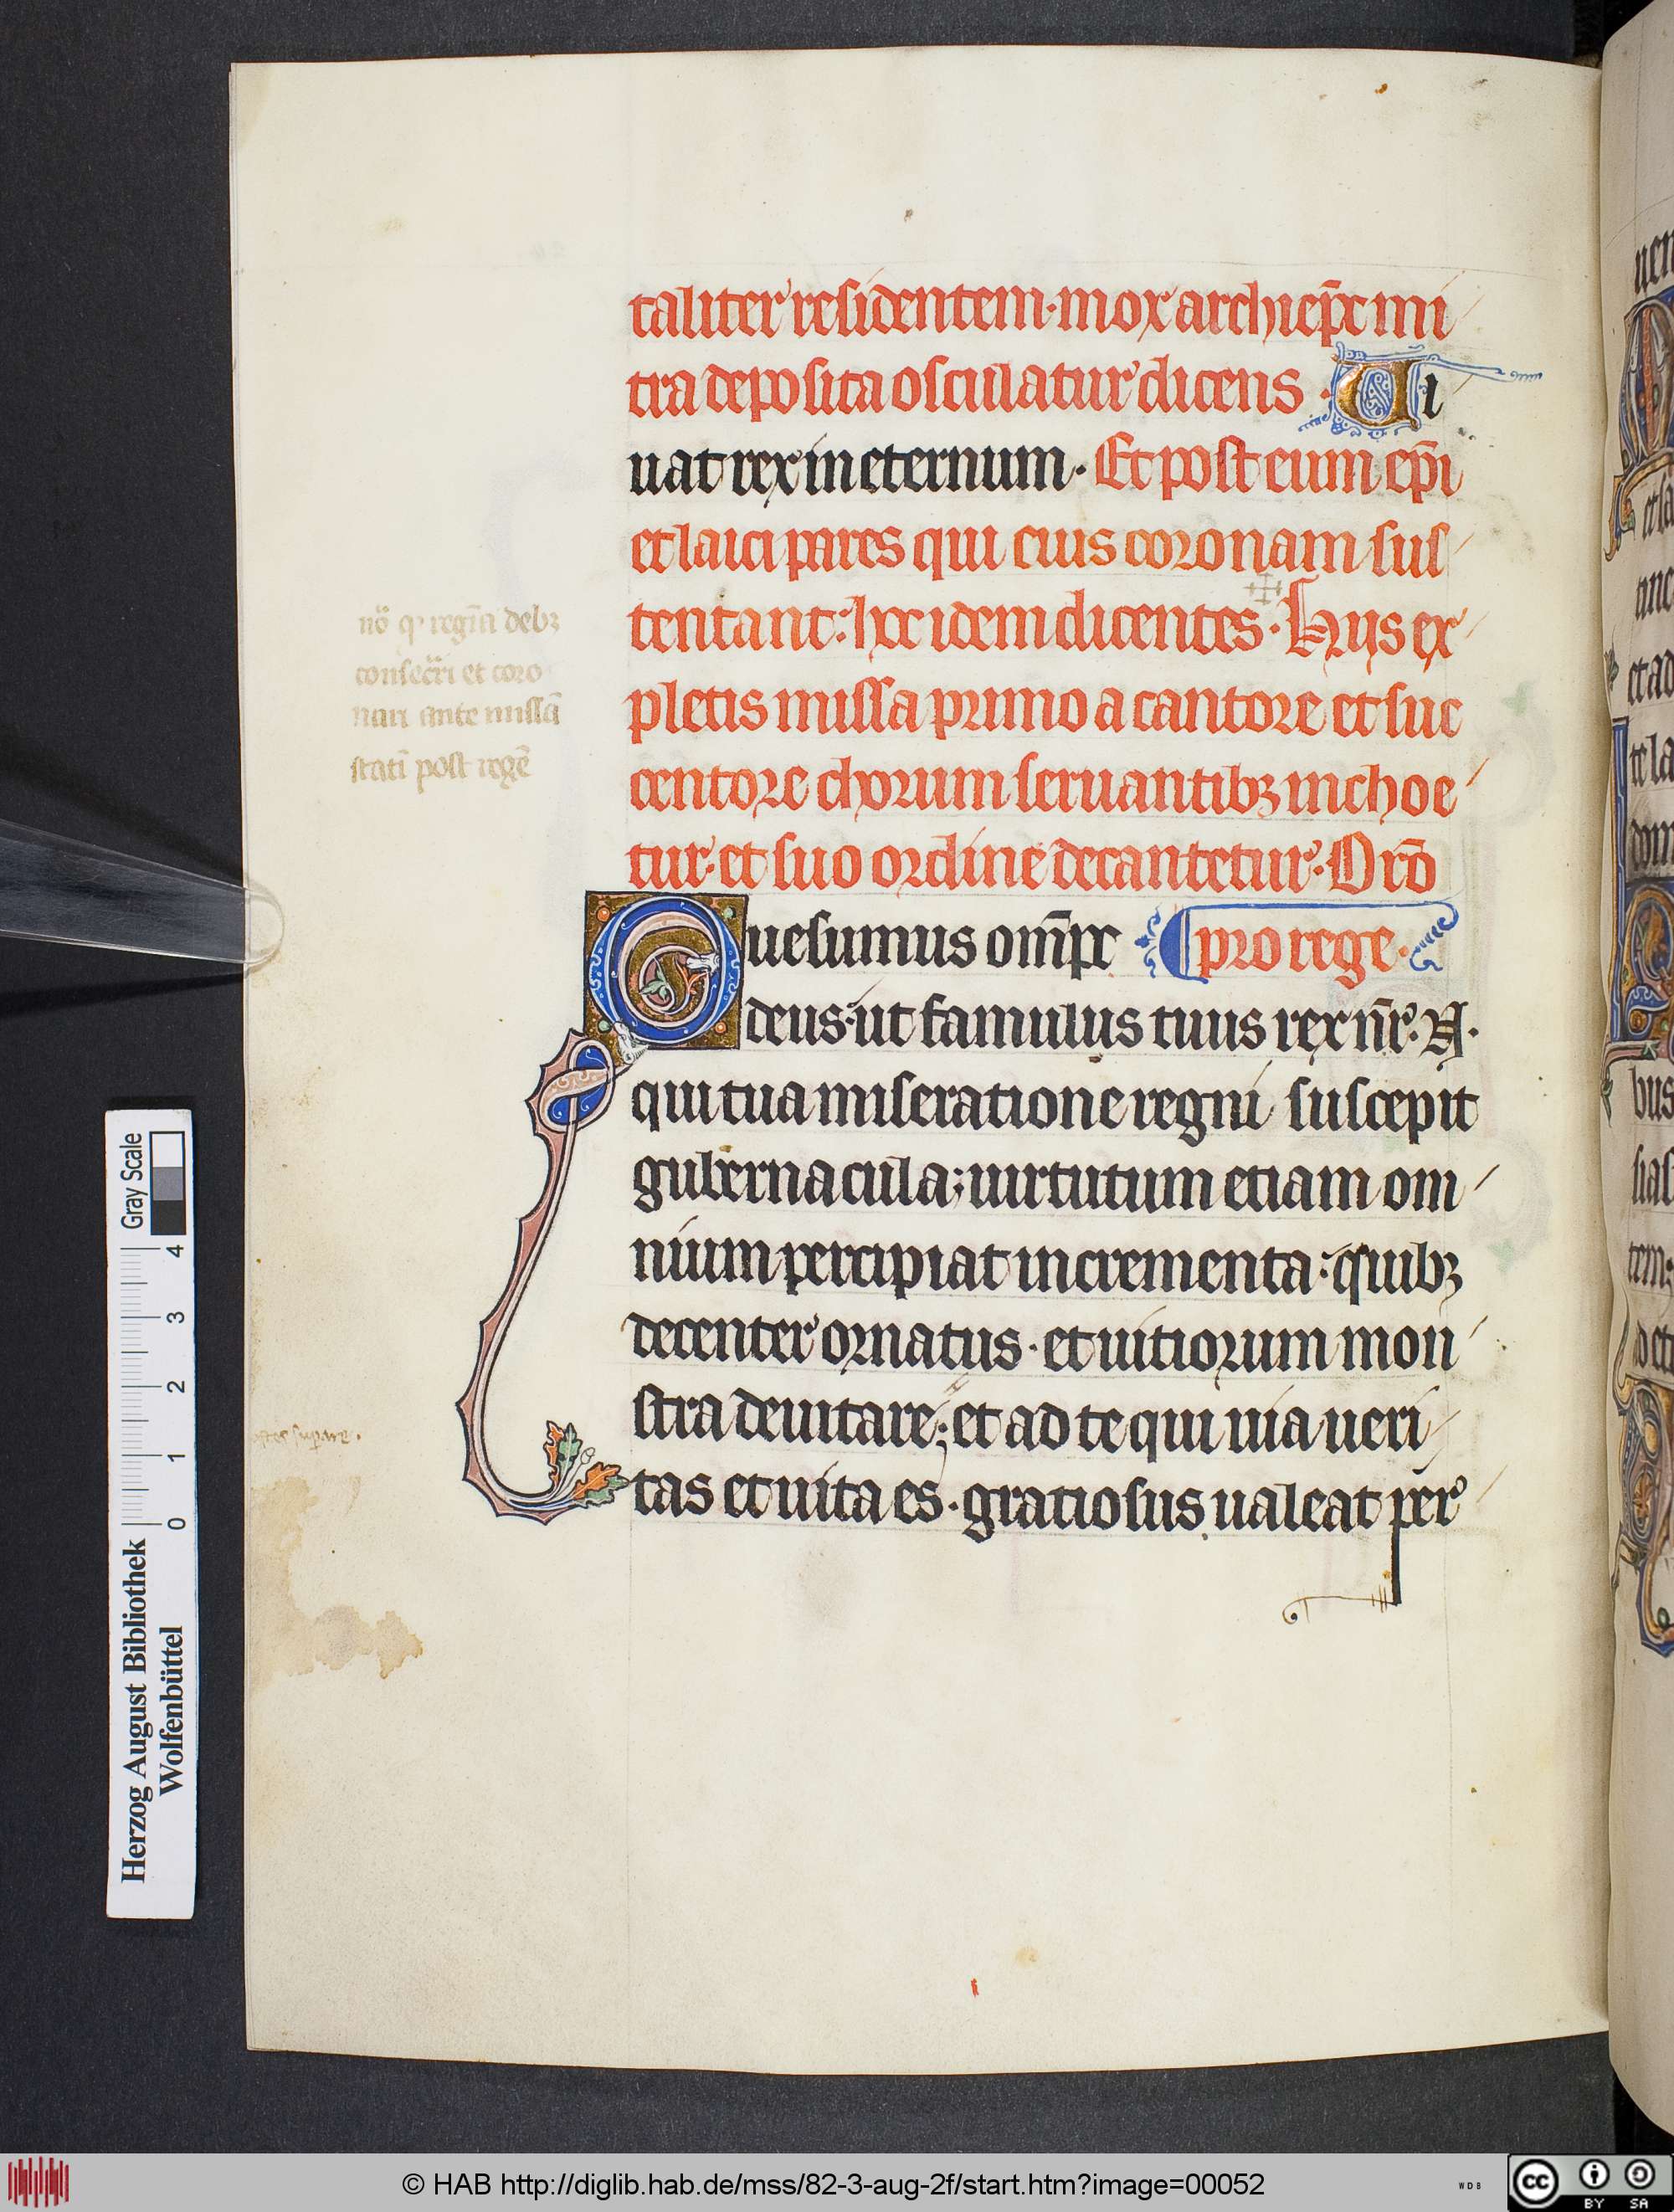 taliter residentem·mox archiep̄c mi
tra deposita osculatur dicens · Ui
uat rex in eternum· Et post eum ep̄i
et laici pares qui eius coronam sus
tentant: hoc idem dicentes· Hijs ex
pletis missa primo a cantore et suc
centore chorum seruantibꝫ inchoe
tur·et suo ordine decantetur·Orō
Quesumus om̄pc pro rege·
deus·ut famulus tuus rex nr̄·N·
qui tua miseratione regni suscepit
gubernacula; uirtutum etiam om
nium percipiat incrementa: quibꝫ
decenter ornatus· et uitiorum mon
stra deuitare; et ad te qui uia ueri
tas et uita es·gratiosus ualeat per
regīa debꝫ
consecr̄i et coro
nari ante missā
statī post regē
Herzog August Bibliothek
Wolfenbüttel
0 1 2 3 4
Gray Scale
© HAB http://diglib.hab.de/mss/82-3-aug-2f/start.htm?image=00052
WDB
cc
BY SA